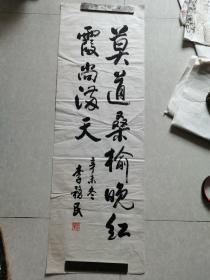 莫道桑榆晚红
霞尚满天
辛未冬
李福民